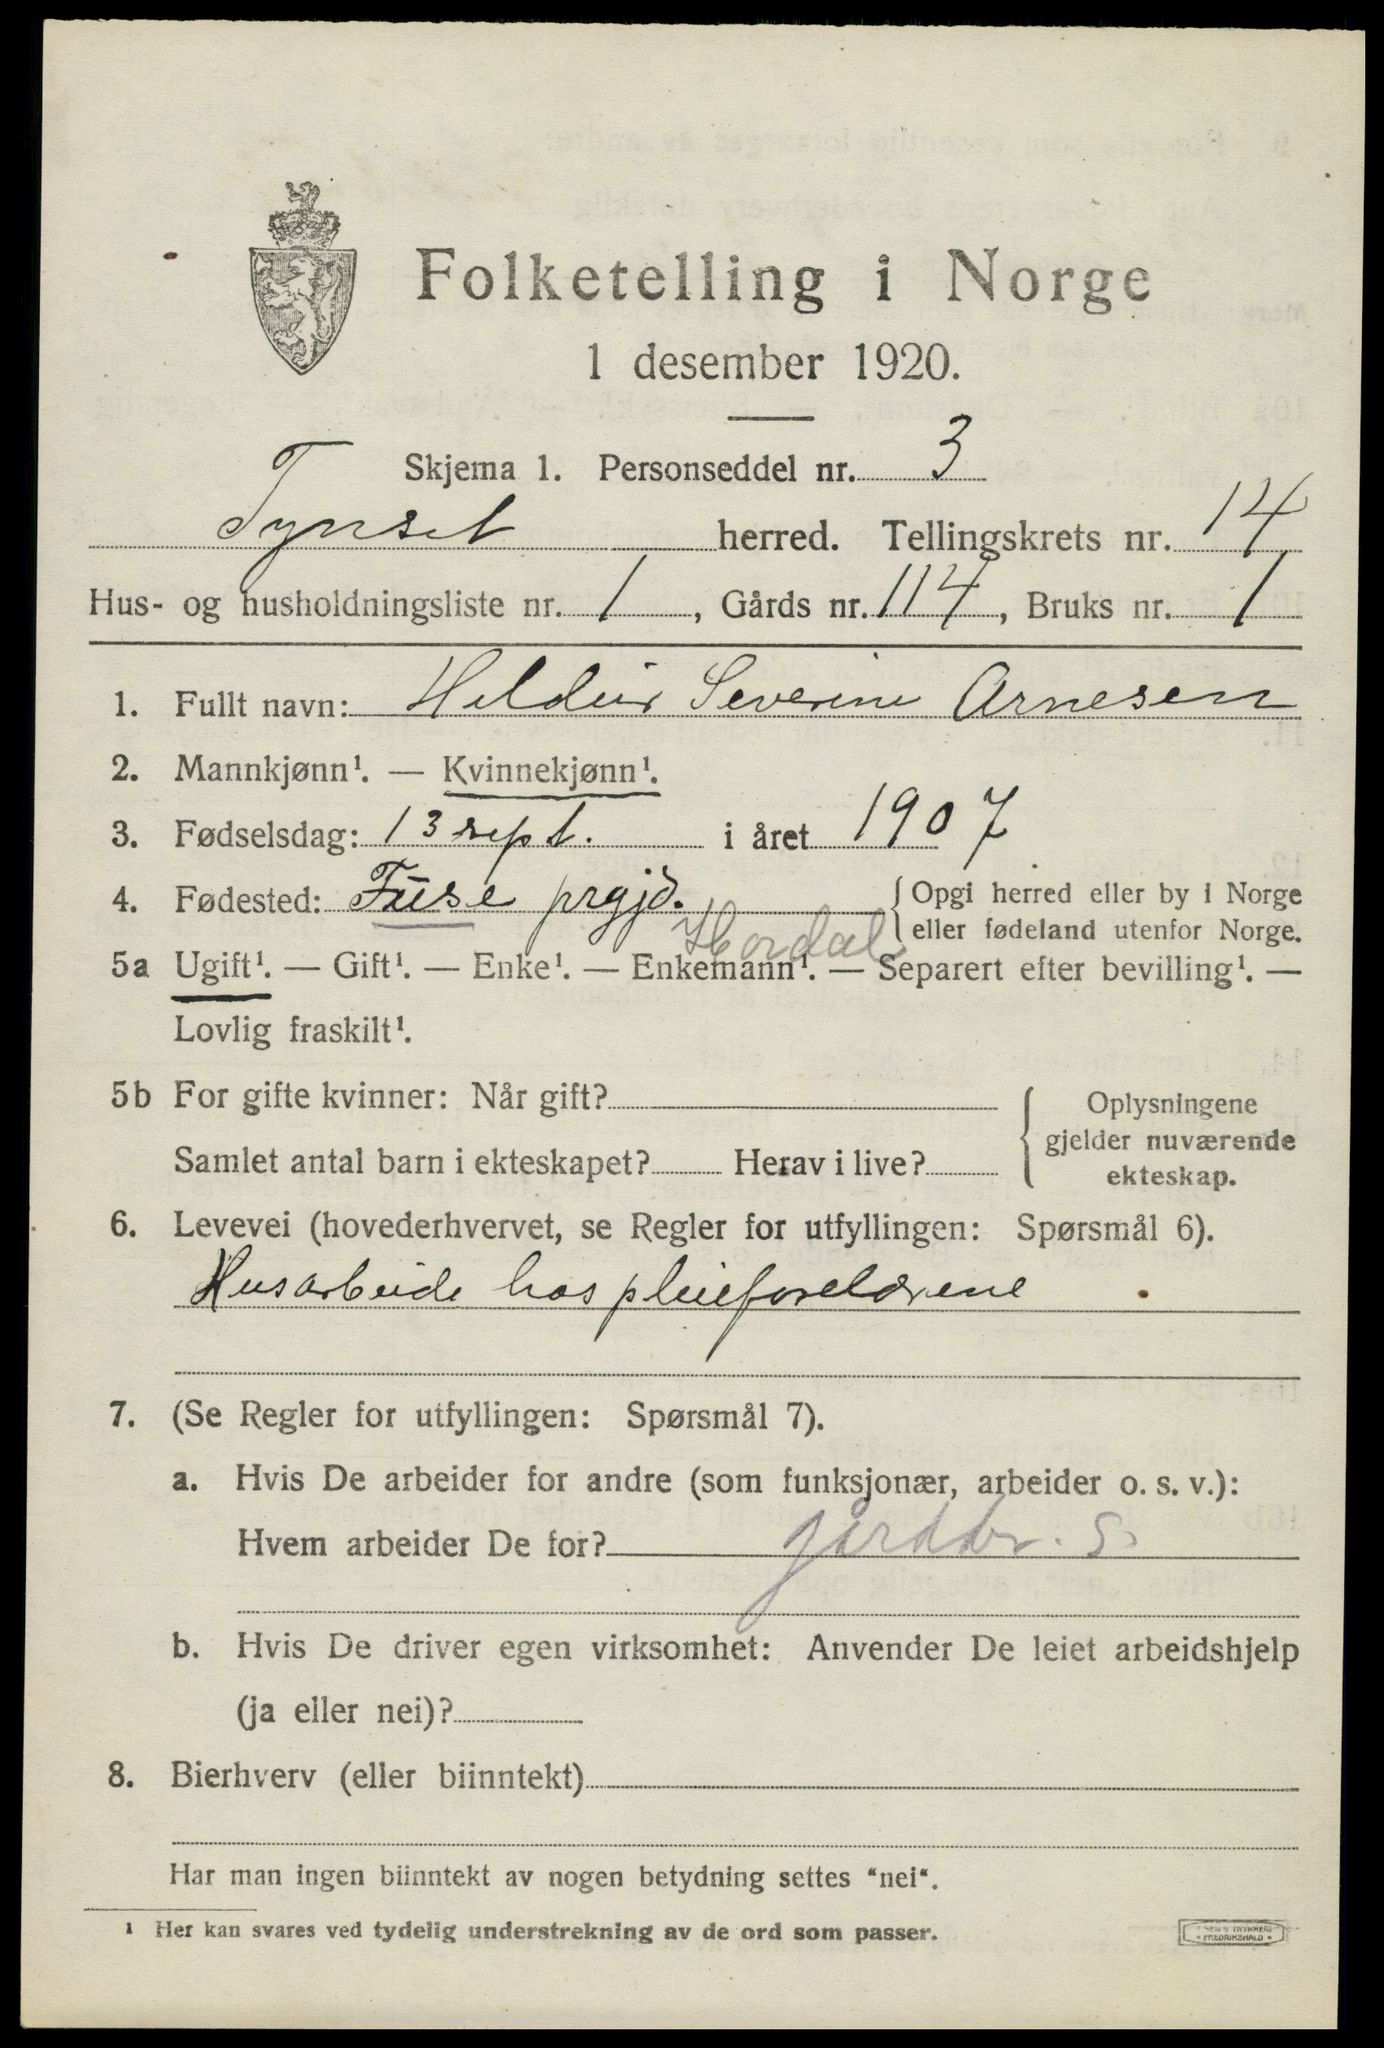 Folketelling i Norge
1 desember 1920.
Skjema 1. Personseddel nr. 3
Tynset herred. Tellingskrets nr. 14
Hus- og husholdningsliste nr. 1, Gårds nr. 114, Bruks nr. 1
1. Fullt navn: Severine Arnesen
2. Mannkjønn¹. — Kvinnekjønn¹.
3. Fødselsdag: 13 sept. i året 1907
4. Fødested: Fuse prgjd. { Opgi herred eller by i Norge
eller fødeland utenfor Norge.
Hordal
5a Ugift¹. — Gift¹. — Enke¹. — Enkemann¹. — Separert efter bevilling¹. —
Lovlig fraskilt¹.
5b For gifte kvinner: Når gift? { Oplysningene
gjelder nuværende
Samlet antal barn i ekteskapet? Herav i live? ekteskap.
6. Levevei (hovederhvervet, se Regler for utfyllingen: Spørsmål 6).
Husarbeide hos pleieforeldrene
7. (Se Regler for utfyllingen: Spørsmål 7).
a. Hvis De arbeider for andre (som funksjonær, arbeider o. s. v.):
Hvem arbeider De for? gårdbr. S.
b. Hvis De driver egen virksomhet: Anvender De leiet arbeidshjelp
(ja eller nei)?
8. Bierhverv (eller biinntekt)
Har man ingen biinntekt av nogen betydning settes "nei".
1 Her kan svares ved tydelig understrekning av de ord som passer.
TRYKKERI
FREDRIKSHALD